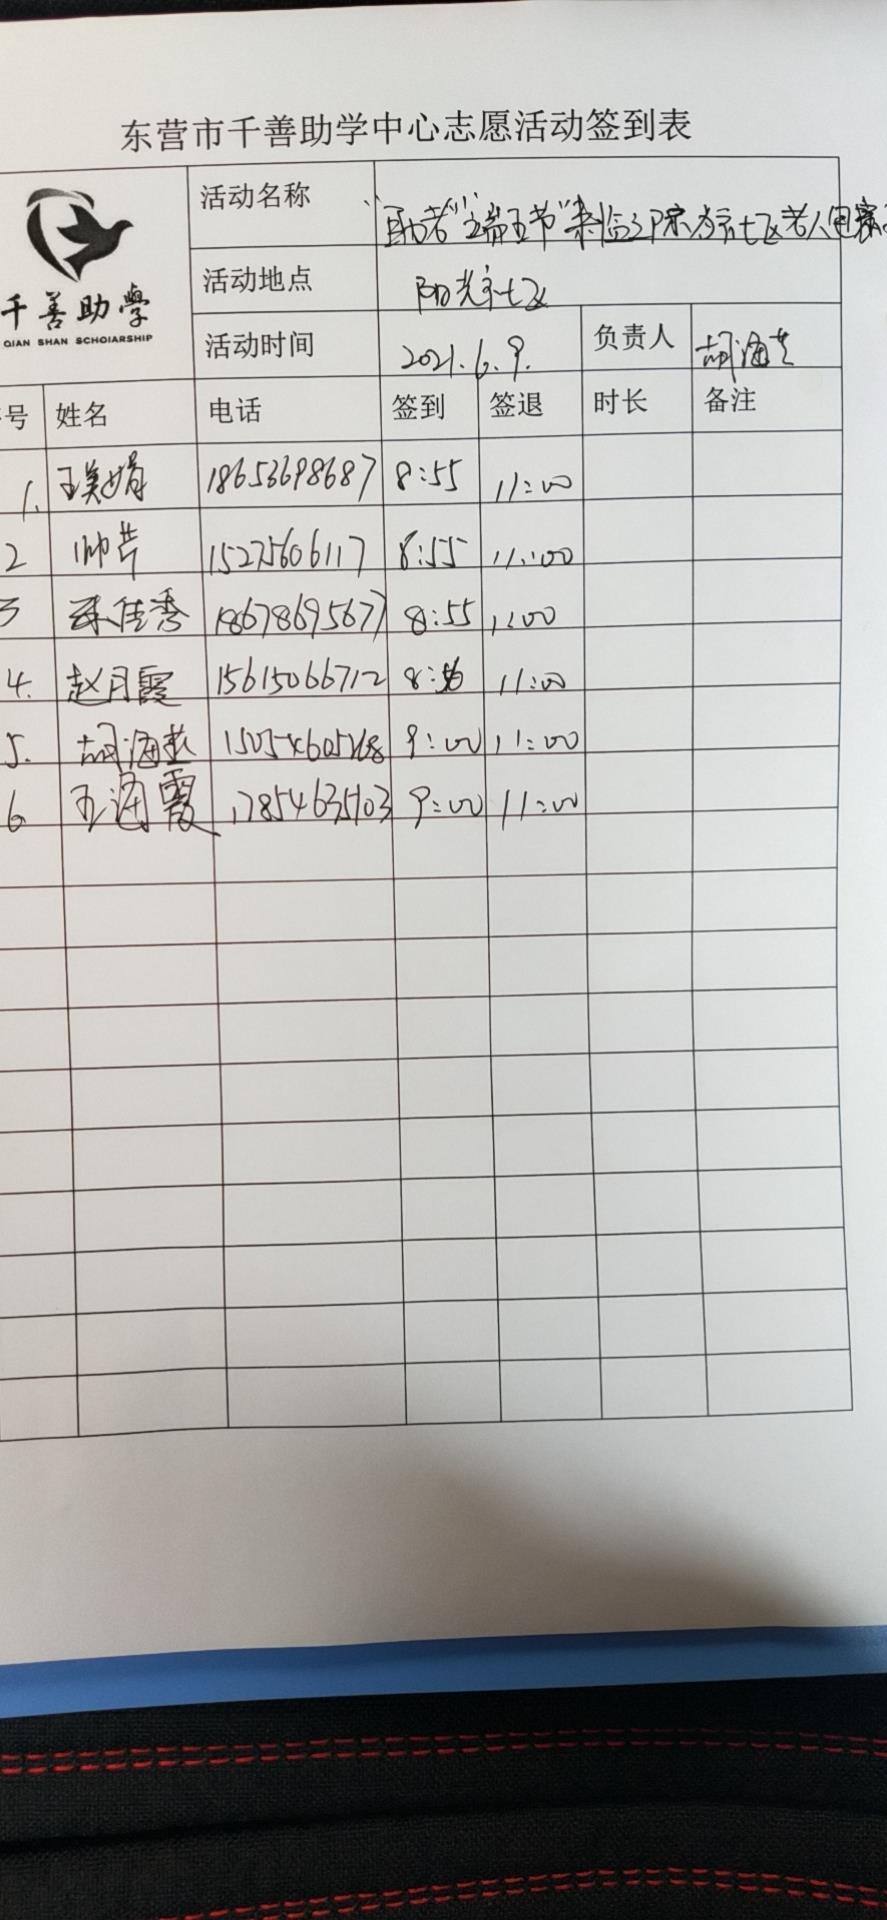 东营市千善助学中心志愿活动签到表
千善助學
QIAN SHAN SCHOIARSHIP
活动名称 助老"端午节"
活动地点 阳光社区
活动时间 2021.6.9. 负责人 胡海燕
号 姓名 电话 签到 签退 时长 备注
1. 王美娟 18653698687 8:55 11:00
2 帅芹 15275606117 8:55 11:00
3 佳秀 18678695677 8:55 11:00
4. 赵月霞 15615066712 8: 11:00
5. 胡海燕 9:00 11:00
6 王海霞 17854635703 9:00 11:00